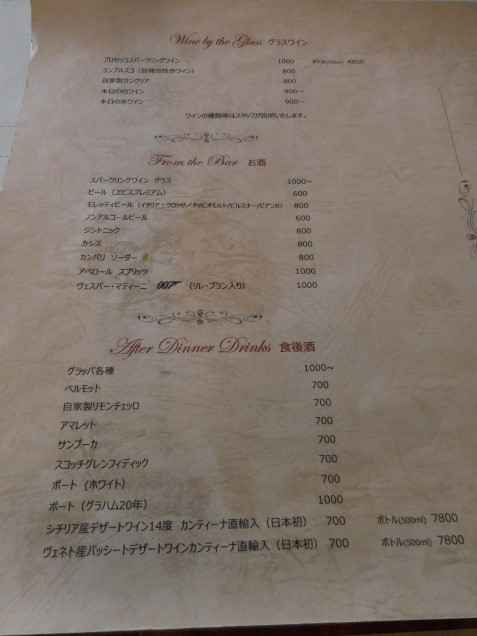 Wine by the Glass グラスワイン
プロセッコスパークリングワイン 1000 ボトル 4800
ランブルスコ（弱発泡性赤ワイン） 800
自家製サングリア 800
本日の白ワイン 900～
本日の赤ワイン 900～
ワインの種類等はスタッフが説明いたします。
From the Bar お酒
スパークリングワイン グラス 1000～
ビール（ヱビスプレミアム） 600
モレッティビール（イタリア：ラロッサ/ドッピオモルト/ピルスナー/ビアンカ） 800
ノンアルコールビール 600
ジントニック 800
カシス 800
カンパリ ソーダー 800
アペロール スプリッツ 1000
ヴェスパー・マティーニ 007 （リレ・ブラン入り） 1000
After Dinner Drinks 食後酒
グラッパ各種 1000～
ベルモット 700
自家製リモンチェッロ 700
アマレット 700
サンブーカ 700
スコッチグレンフィディック 700
ポート（ホワイト） 700
ポート（グラハム20年） 1000
シチリア産デザートワイン14度 カンティーナ直輸入（日本初） 700 ボトル(500ml) 7800
ヴェネト産パッシートデザートワインカンティーナ直輸入（日本初） 700 ボトル(500ml) 7800